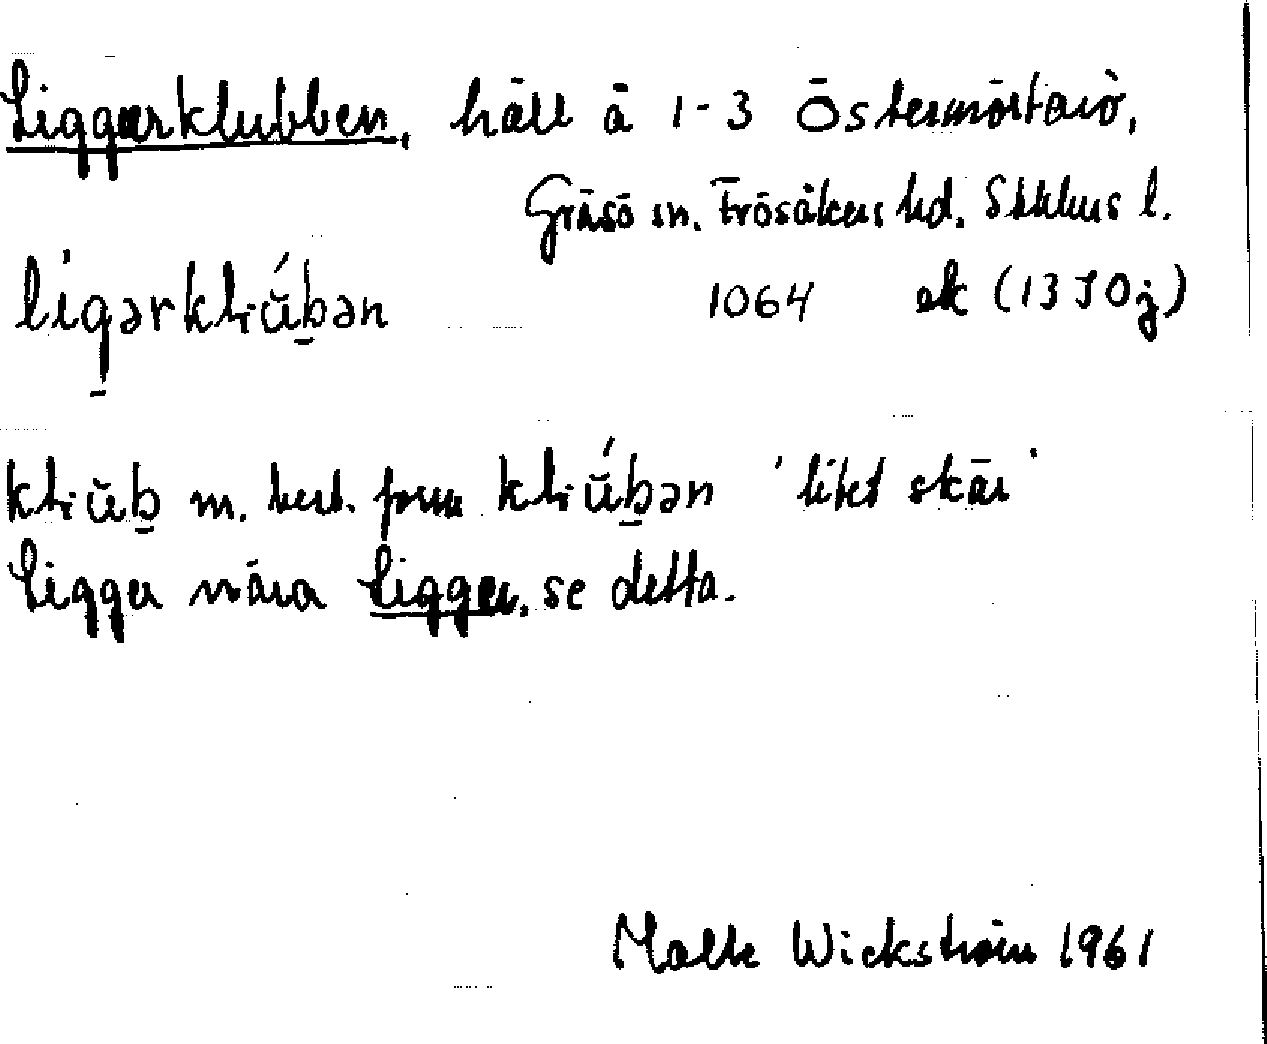 Liggarklubben, häll å 1-3 Östermörtarö,
Gräsö sn. Frösåkers hd. Sthlms l.
ligərkliŭ́bən 1064 ek (13 I 0 j)
kliŭb m. best. form kliŭ́bən 'litet skär'
Ligger nära Ligger, se detta.
Malte Wickström 1961